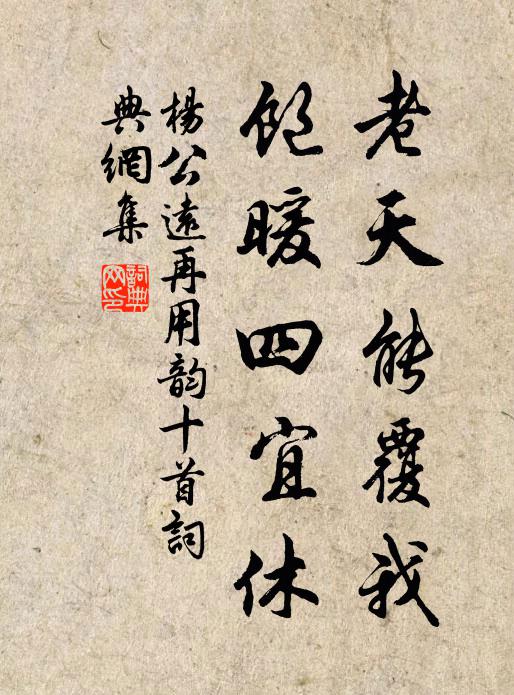 老天能覆我
飽暖四宜休
楊公遠再用韵十首詞
典網集
詞典網印